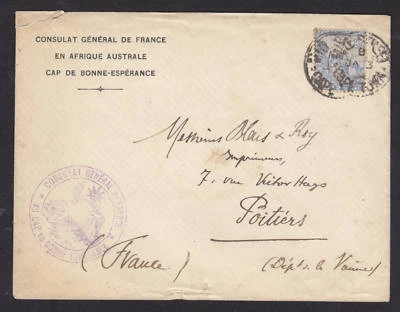 CONSULAT GÉNÉRAL DE FRANCE
EN AFRIQUE AUSTRALE
CAP DE BONNE-ESPÉRANCE
Messieurs Blais & Roy
Imprimeurs,
7, rue Victor Hugo
Poitiers
(France)
(Dépt. de la Vienne)
CONSULAT GÉNÉRAL DE FRANCE